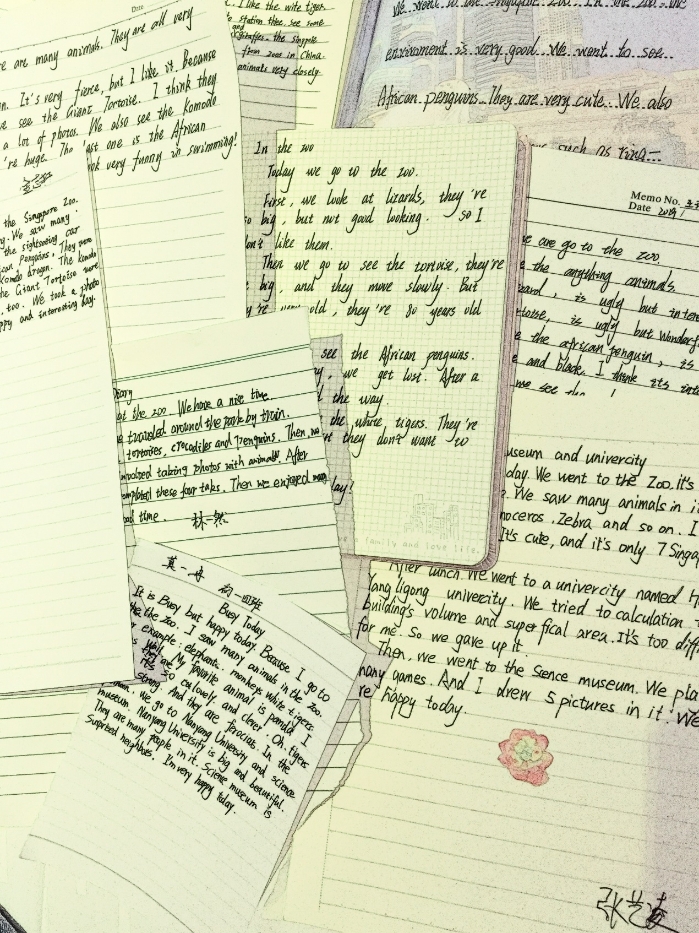 Date
re are many animals. They are all very
n. It's very fierce, but I like it. Because
e see the Giant Tortoise. I think they
a lot of photos. We also see the Komodo
're huge. The last one is the African
ok very funny in swimming!
the Singapore Zoo.
y. We saw many
the sightseeing car
ican Penguins. They were
Komodo dragon. The komodo
the Giant Tortoise were
too. We took a photo
ppy and interesting day.
I like the wite tiger.
station thee, see some
and
giraffes, the singple
from zoos in China.
animals very closely.
enviroment is very good. We want to see
African penguins. They are very cute. We also
such as ring
In the zoo
Today we go to the zoo.
First, we look at lizards, they 're
so big, but not good looking. so I
don't like them.
Then we go to see the tortoise, they're
big, and they move slowly. But
they're very old, they 're 80 years old
see the African penguins.
, we get lost. After a
the way.
the white tigers. They're
t they don't want to
day!
family and love life.
Memo No.
Date 2019/
e are go to the zoo.
e the anything animals.
zard, is ugly but inter
rtoise, is ugly but Wonderf
e the african penguin, is
e and black. I think its int
we see
Diary
at the zoo. We have a nice time.
traveled around the park by train.
tortoises, crocodiles and Penguins. Then, we
involved taking photos with animals. After
completed these four taks. Then we enjoyed
ood time. 林一然
莫一舟 初一四班
Busy Today
It is Busy but happy today. Because I go to
the the zoo. I saw many animals in the zoo.
For example: elephants. monkeys white tigers.
well. My favorite animal is panda! I
so cutlovely and clever. Oh. tigers
strong. And they are ferocials. In the
we go to Nanyang University and science
museum. Nanyang University is big and beautiful.
They are many people in it. Science museum is
Suprised neighbors. I'm very happy today.
useum and univercity
day. We went to the Zoo. it's
. We saw many animals in it
noceros. Zebra and so on. I
It's cute, and it's only 7 Singap
After lunch. We went to a univercity named N
Yang ligong univercity. We tried to calculation t
building's volume and superfical area. It's too diff
for me. So we gave up it.
Then, we went to the Sience museum. We pla
many games. And I drew 5 pictures in it! We
re happy today.
张艺凌